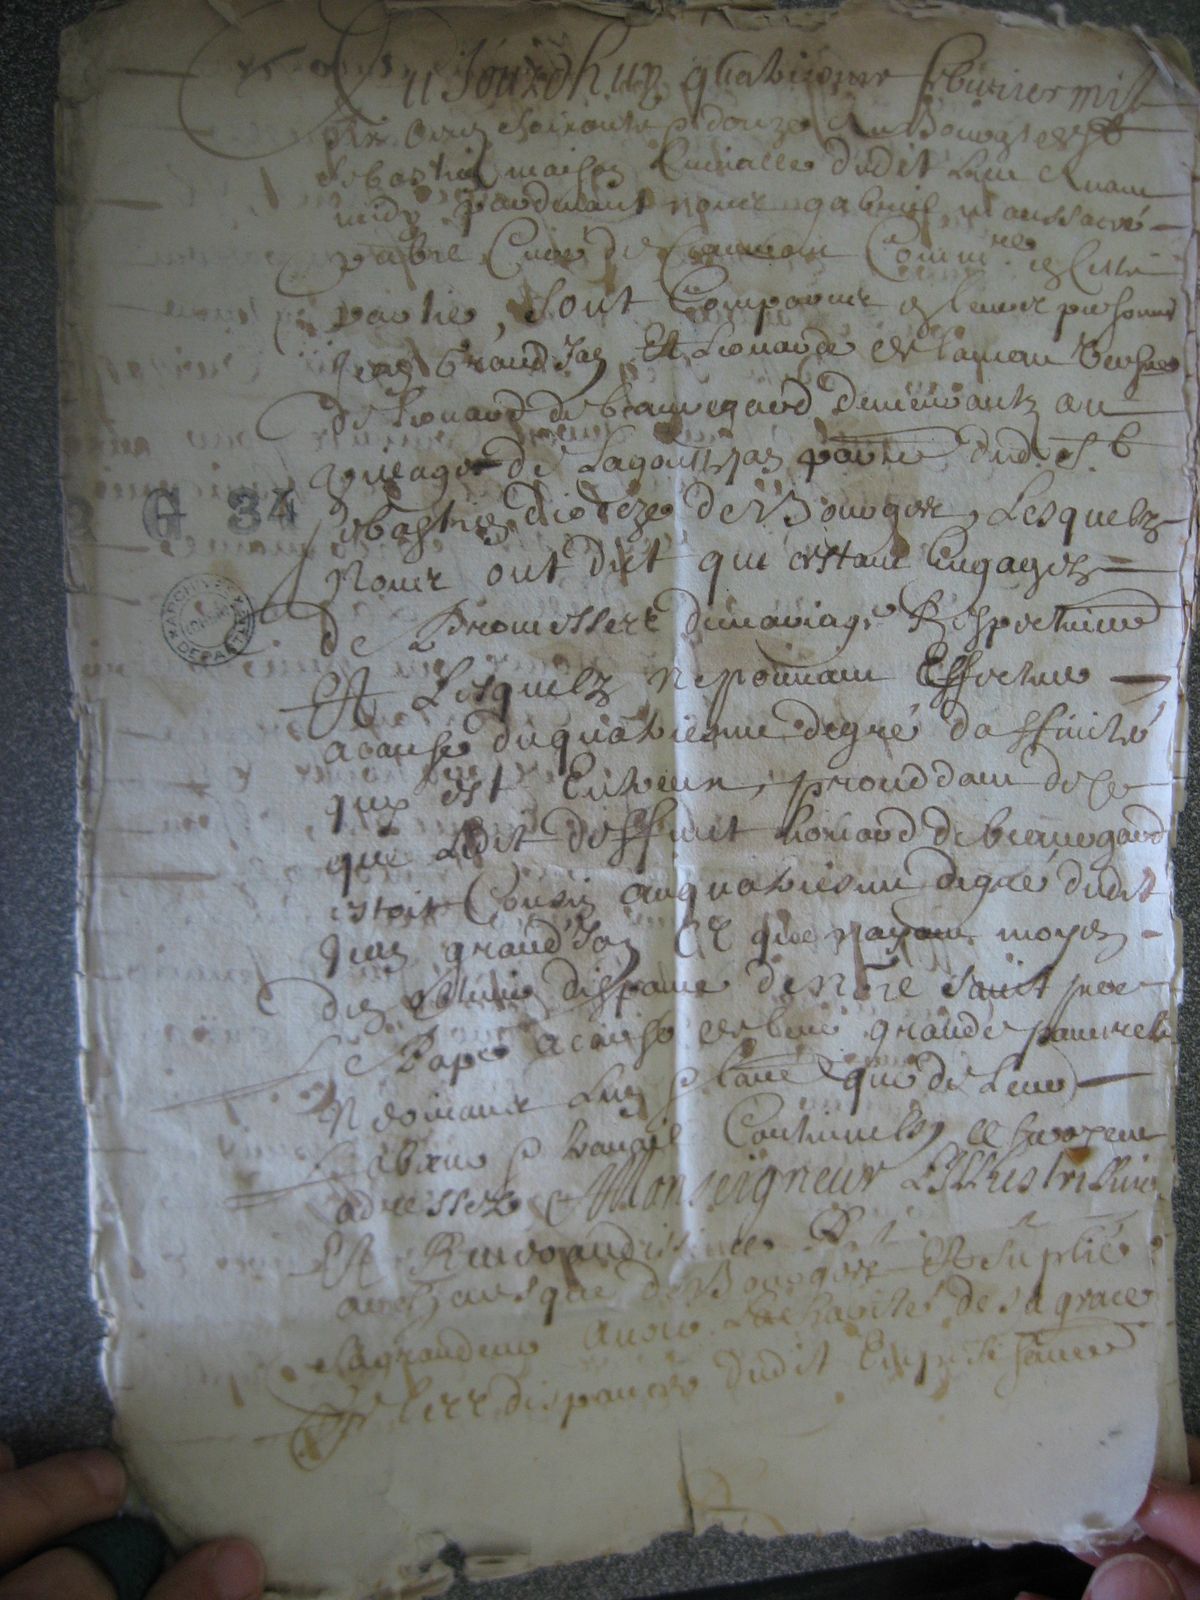 Aujourdhuy quatriesme febvrier mil
six cens soixante & douze au Bourg de St
Sebastien maison curialle dudit lieu avant
midy pardevant nous gabriel maussacré
prbre Curé de Commre en ceste
partie, sont Comparus en leurs personnes
Jean Grand Jan Et Lionarde de lameau vefve
de Lionard de beauregard demeurants au
village de Lagoutte paroisse dud. St
Sebastien dioceze de Bourges, Lesquelz
Nous ont dict que estant Engagéz
de Promesses de mariage Respective
Et Lesquelz ne pouvant Effectuer
acause du quatriesme degré daffinité
qui est Entreux, provenant de ce
que Ledit deffunt Lionard de beauregard
estoit Cousin au quatriesme degré dudit
Jean grand Jan Et que nayant moyen
den obtenir dispance de Nre saint pere
Le Pape acause de leur grande pauvreté
Nayant que de Leur
Labeur & travail Continuel, ce seroient
adressez a Monseigneur LIllustrissime
Et Reverandissime
archevesque de Bourges Et suplié
sa grandeur avoir La charité de sa grace
de les dispancer dudit Empeschement
2 G 34
ARCHIVES DEPART